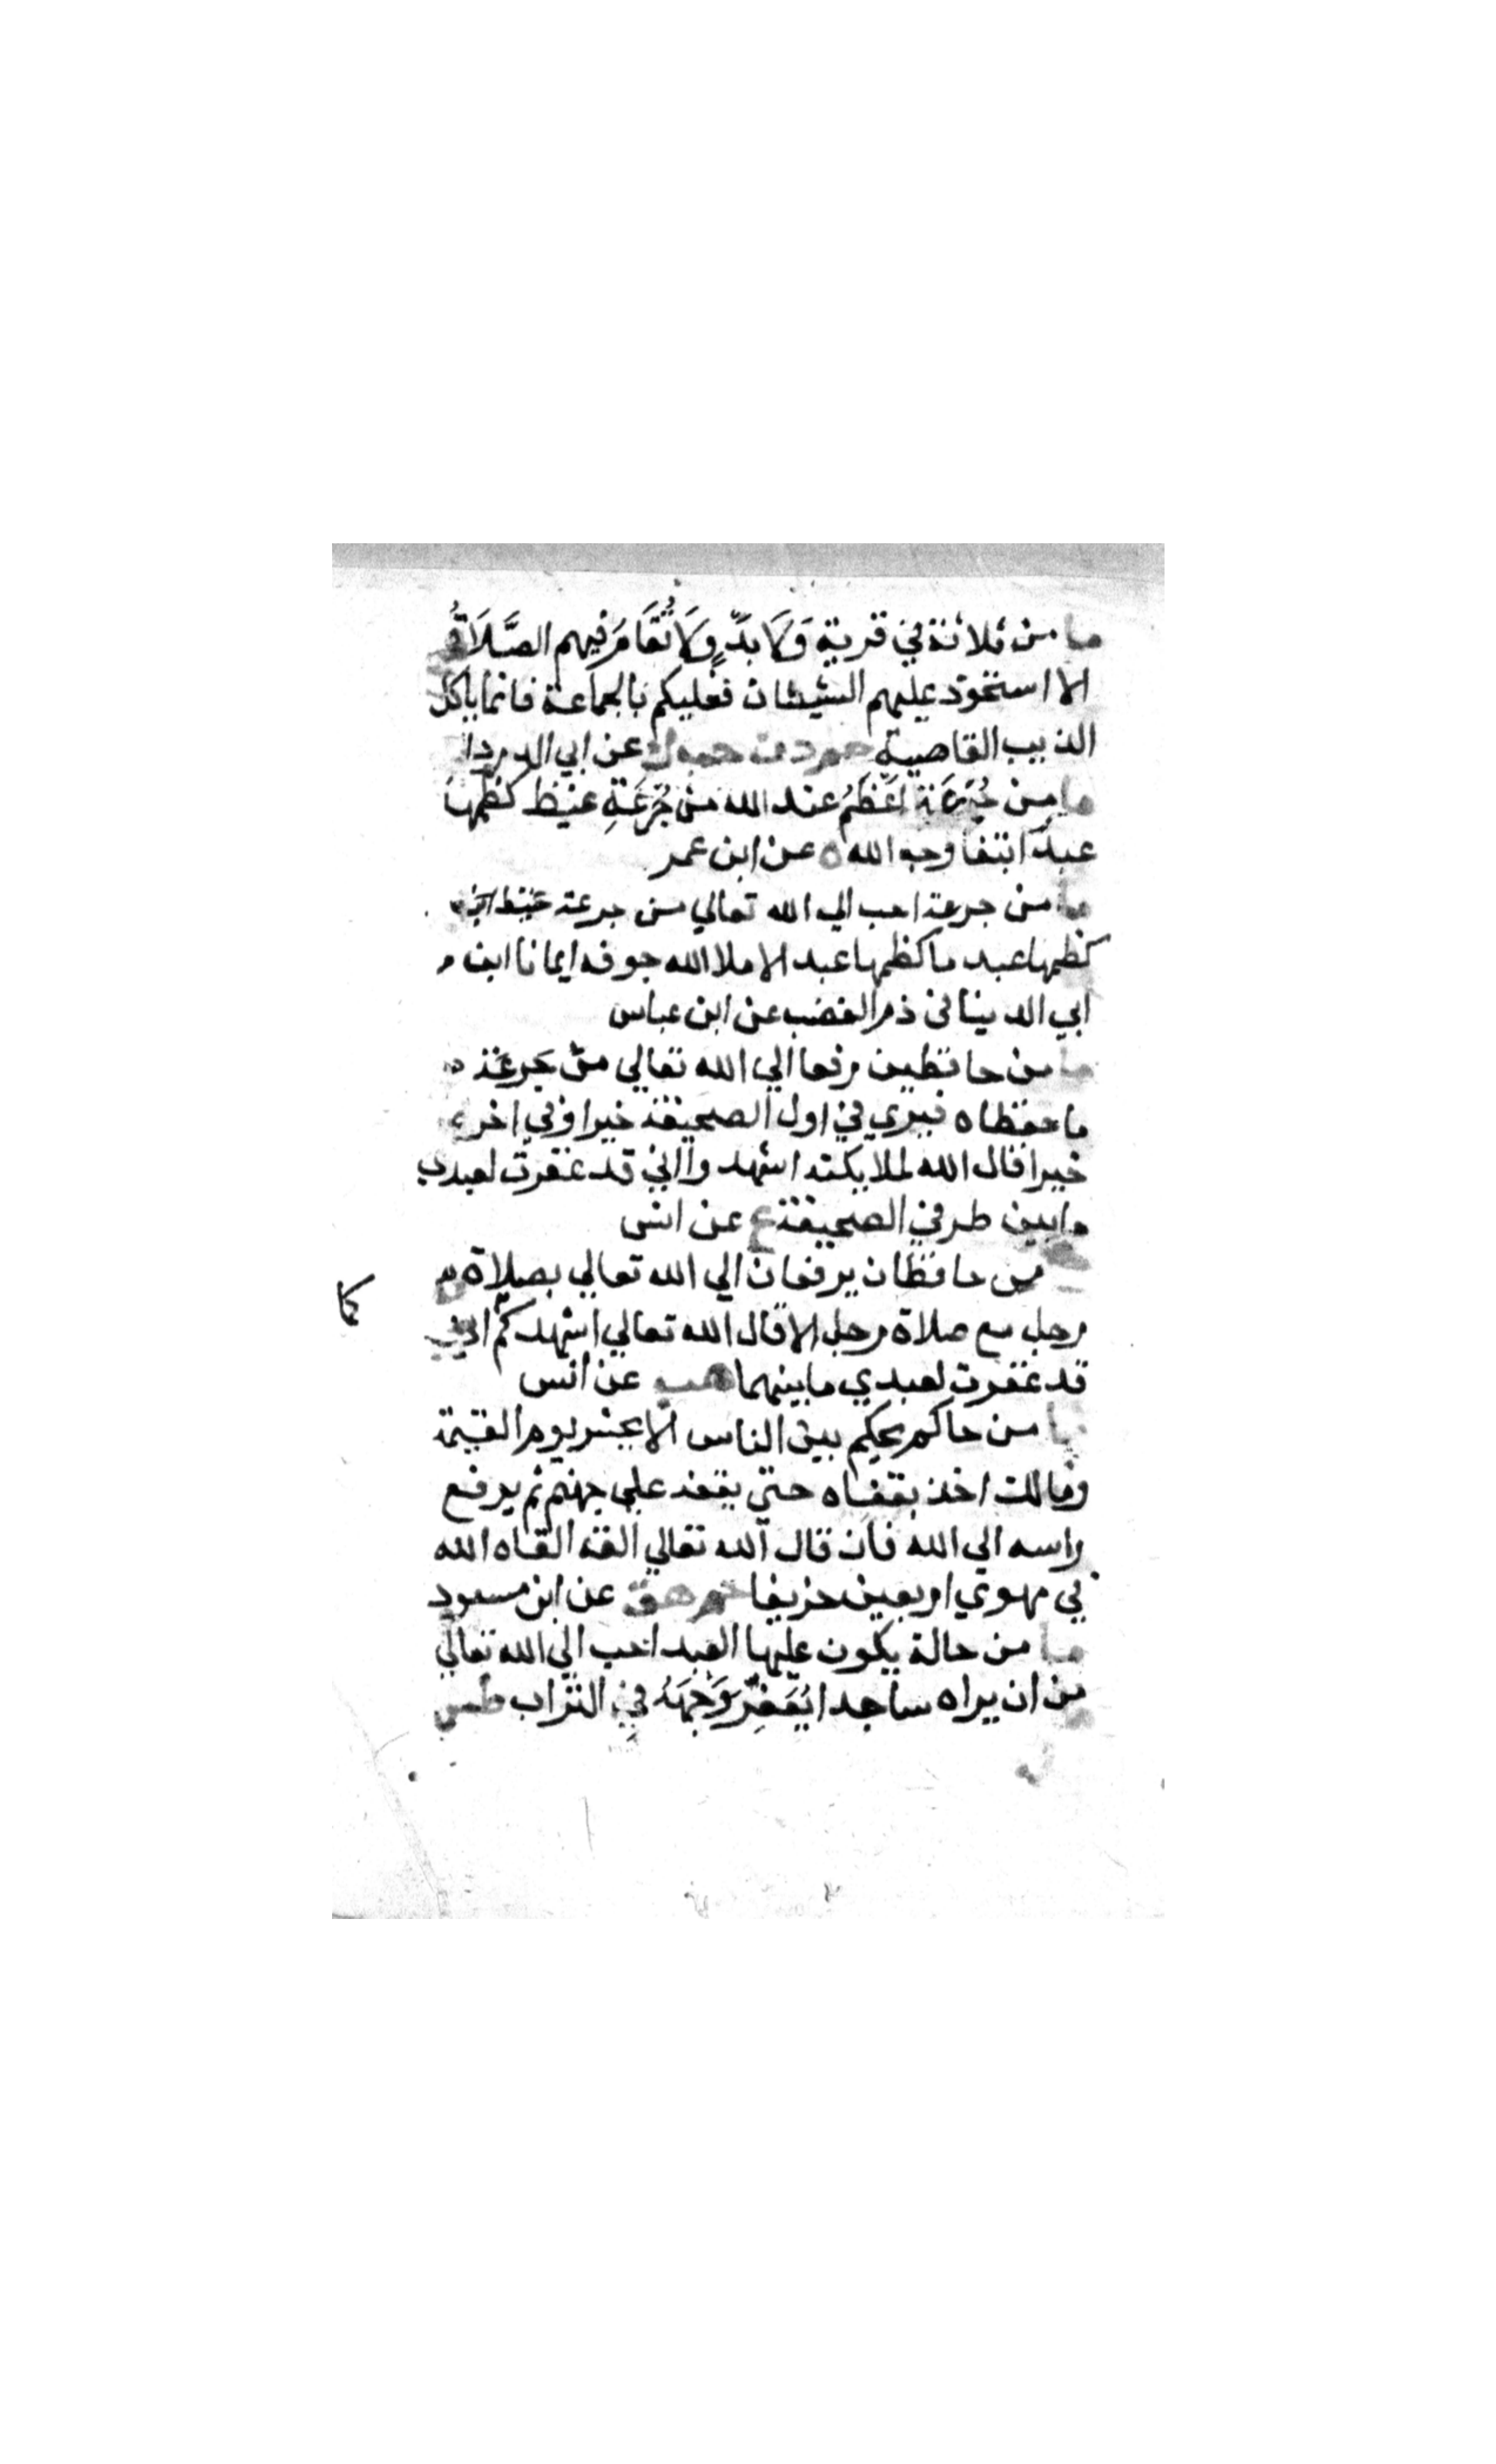 ما من ثلاثة في قرية وَلَا بَدْوٍ وَلَا تُقَامُ فيهم الصَّلَاةُ
الا استحوذ عليهم الشيطان فعليكم بالجماعة فانما ياكل
الذيب القاصية حم د ن حب ك عن ابي الدردا
ما من جُرْعَة اَعْظَمُ عند الله من جُرْعَةِ غيظ كظمها
عبد ابتغا وجه الله ه عن ابن عمر
ما من جرعة احب الي الله تعالي من جرعة غيظ
كظمها عبد ما كظمها عبد الا ملا الله جوفه ايمانا ابن
ابي الدينا في ذم الغضب عن ابن عباس
ما من حافظين رفعا الي الله تعالي من
ما حفظاه فيري في اول الصحيفة خيرا وفي اخره
خيرا قال الله لملايكته اشهدوا اني قد غفرت لعبدي
ما بين طرفي الصحيفة ع عن انس
من حافظان يرفعان الي الله تعالي بصلاة
رجل مع صلاة رجل الا قال الله تعالي اشهدكم اني
قد غفرت لعبدي ما بينهما هب عن انس
ما من حاكم يحكم بين الناس الا يحشر يوم القيمة
وملك اخذ بقفاه حتي يقفه علي جهنم ثم يرفع
راسه الي الله فان قال الله تعالي القه القاه الله
في مهوي اربعين خريفا حم هق عن ابن مسعود
ما من حالة يكون عليها العبد احب الي الله تعالي
من ان يراه ساجدا يُعَفِّرُ وَجْهَهُ فِي التراب طس